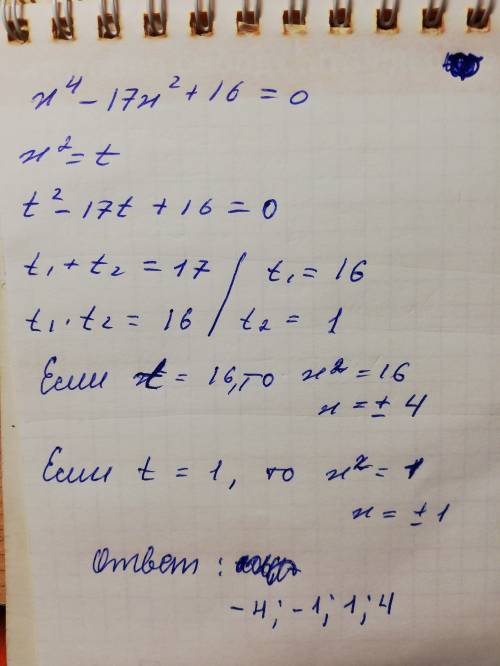 x⁴ - 17x² + 16 = 0
x² = t
t² - 17t + 16 = 0
t₁ + t₂ = 17 / t₁ = 16
t₁ · t₂ = 16 / t₂ = 1
Если t = 16, то x² = 16
x = ± 4
Если t = 1, то x² = 1
x = ± 1
Ответ :
-4; -1; 1; 4